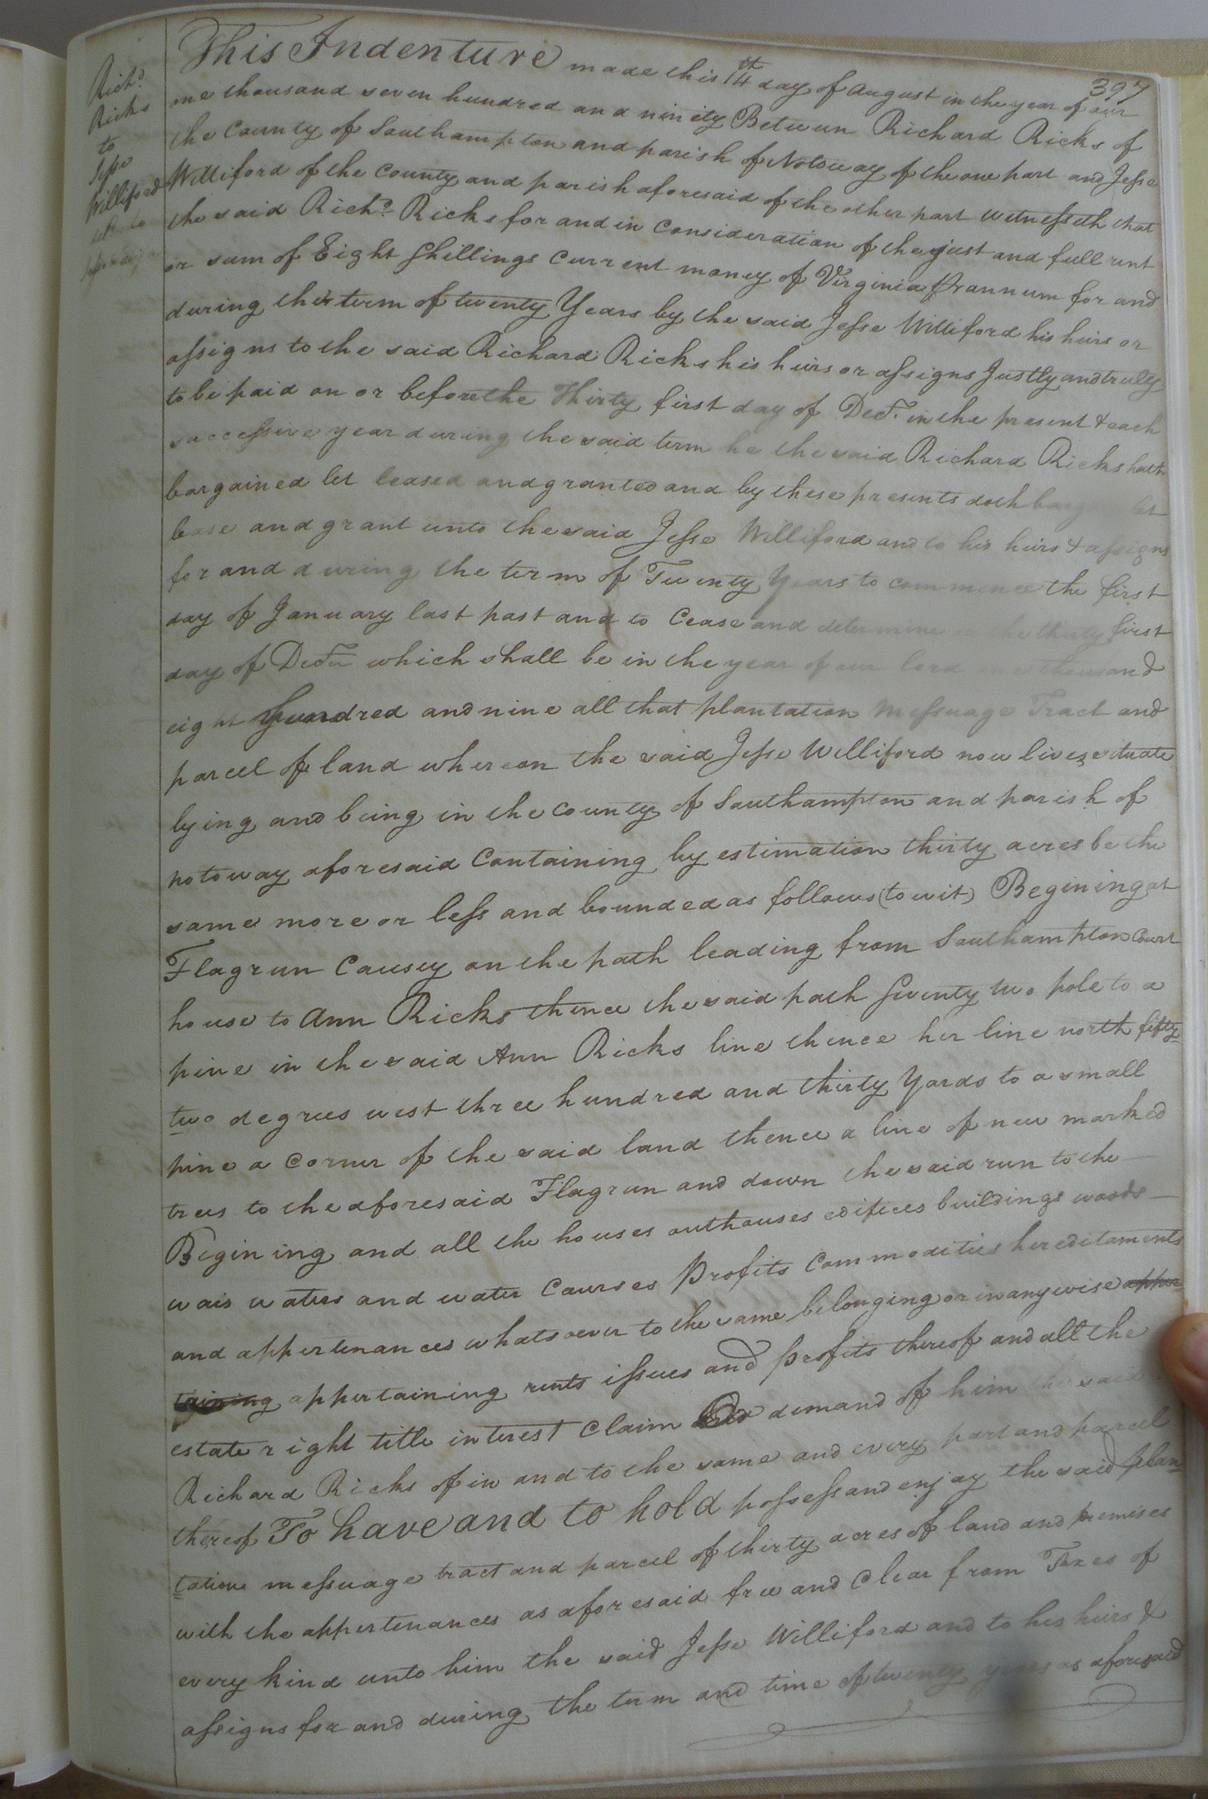 397
Richd.
Ricks
to
Jesse
Williford
This Indenture made this 14th day of August in the year of our
one thousand seven hundred and ninety Between Richard Ricks of
the County of Southampton and parish of Notoway of the one part and Jesse
Williford of the County and parish aforesaid of the other part Witnesseth that
the said Richd. Ricks for and in consideration of the just and full rent
or sum of Eight Shillings Current money of Virginia Pr annum for and
during the term of twenty Years by the said Jesse Williford his heirs or
assigns to the said Richard Ricks his heirs or assigns Justly and truly
to be paid on or before the Thirty first day of Decr. in the present & each
successive year during the said term he the said Richard Ricks hath
bargained let leased and granted and by these presents doth let
lease and grant unto the said Jesse Williford and to his heirs & assigns
for and during the term of Twenty Years to commence the first
day of January last past and to Cease and determine the thirty first
day of Decr. which shall be in the year of our lord one thousand
eight Hundred and nine all that plantation Messuage Tract and
parcel of land whereon the said Jesse Williford now lives situate
lying and being in the County of Southampton and parish of
notoway aforesaid Containing by estimation thirty acres be the
same more or less and bounded as follows (to wit) Begining at
Flagrun Causey on the path leading from Southampton Court
house to Ann Ricks thence the said path Seventy two pole to a
pine in the said Ann Ricks line thence her line north fifty
two degrees west three hundred and thirty Yards to a small
pine a Corner of the said land thence a line of new marked
trees to the aforesaid Flagrun and down the said run to the
Begining and all the houses outhouses edifices buildings woods
wais waters and water Courses Profits Commodities hereditaments
and appertenances whatsoever to the same belonging or in any wise apper
taining appertaining rents issues and profits thereof and all the
estate right title interest Claim and demand of him the said
Richard Ricks of in and to the same and every part and parcel
thereof To have and to hold possess and enjoy the said plan
tation messuage tract and parcel of thirty acres of land and premises
with the appertenances as aforesaid free and Clear from Taxes of
every kind unto him the said Jesse Williford and to his heirs &
assigns for and during the term and time of twenty years as aforesaid